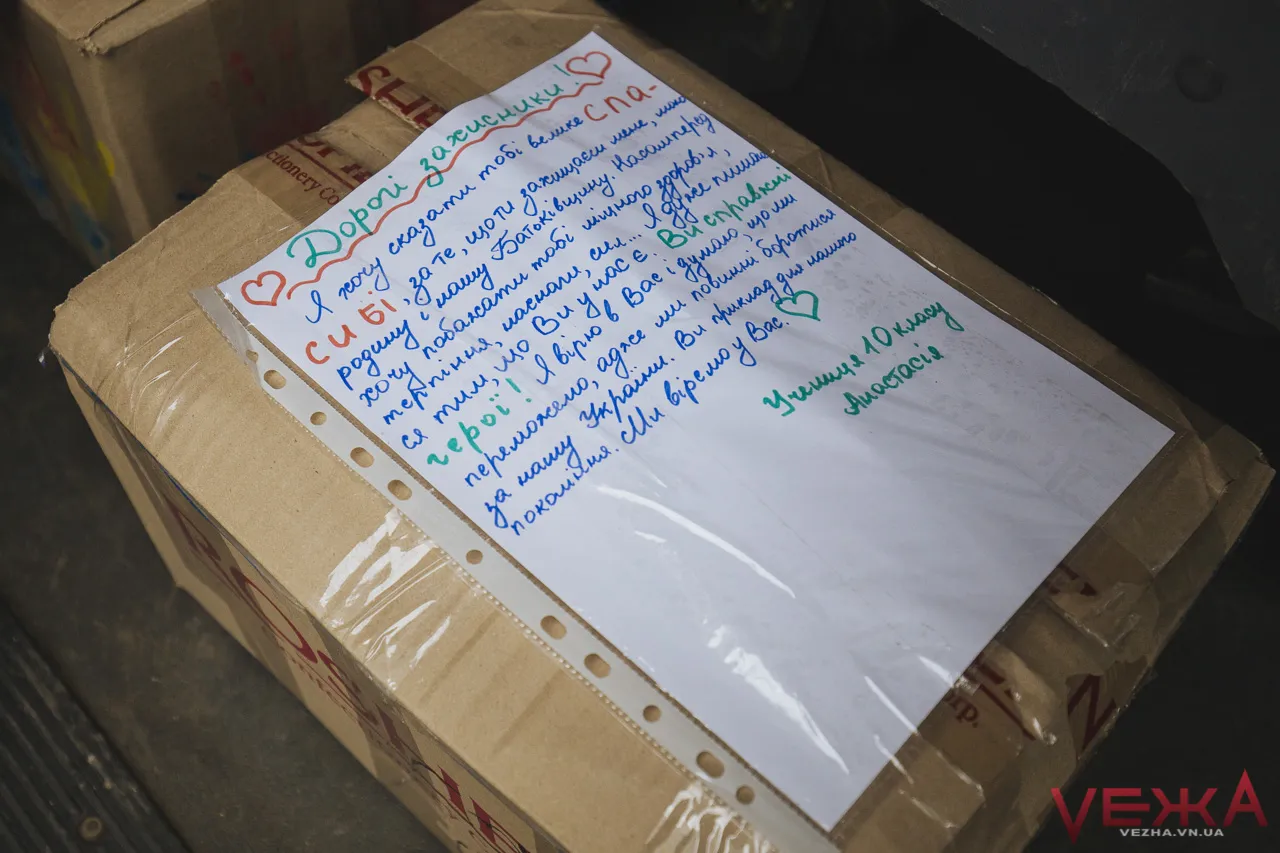 Дорогі захисники!
Я хочу сказати тобі велике СПА-
СИБІ, за те, що ти захищаєш мене, мою
родину і нашу Батьківщину. Насамперед
хочу побажати тобі міцного здоров'я,
терпіння, наснаги, сил... Я дуже пишаю
ся тим, що Ви у нас є. Ви справжні
герої! Я вірю в Вас і думаю, що ми
переможемо, адже ми повинні боротися
за нашу Україну. Ви приклад для нашого
покоління. Ми віремо у Вас.
Учениця 10 класу
Анастасія
ctionery Co
ROSHEN
orp.
VЕЖА
VEZHA.VN.UA